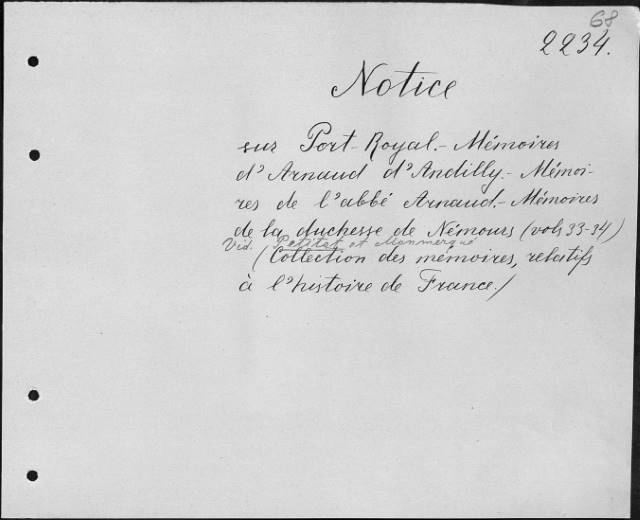 68
2234.
Notice
sur Port-Royal.- Mémoires
d'Arnaud d'Andilly.- Mémoi-
res de l'abbé Arnaud.- Mémoires
de la duchesse de Némours (vols 33-34)
Vid. Petitot et Monmerqué
(Collection des mémoires, relatifs
à l'histoire de France.)